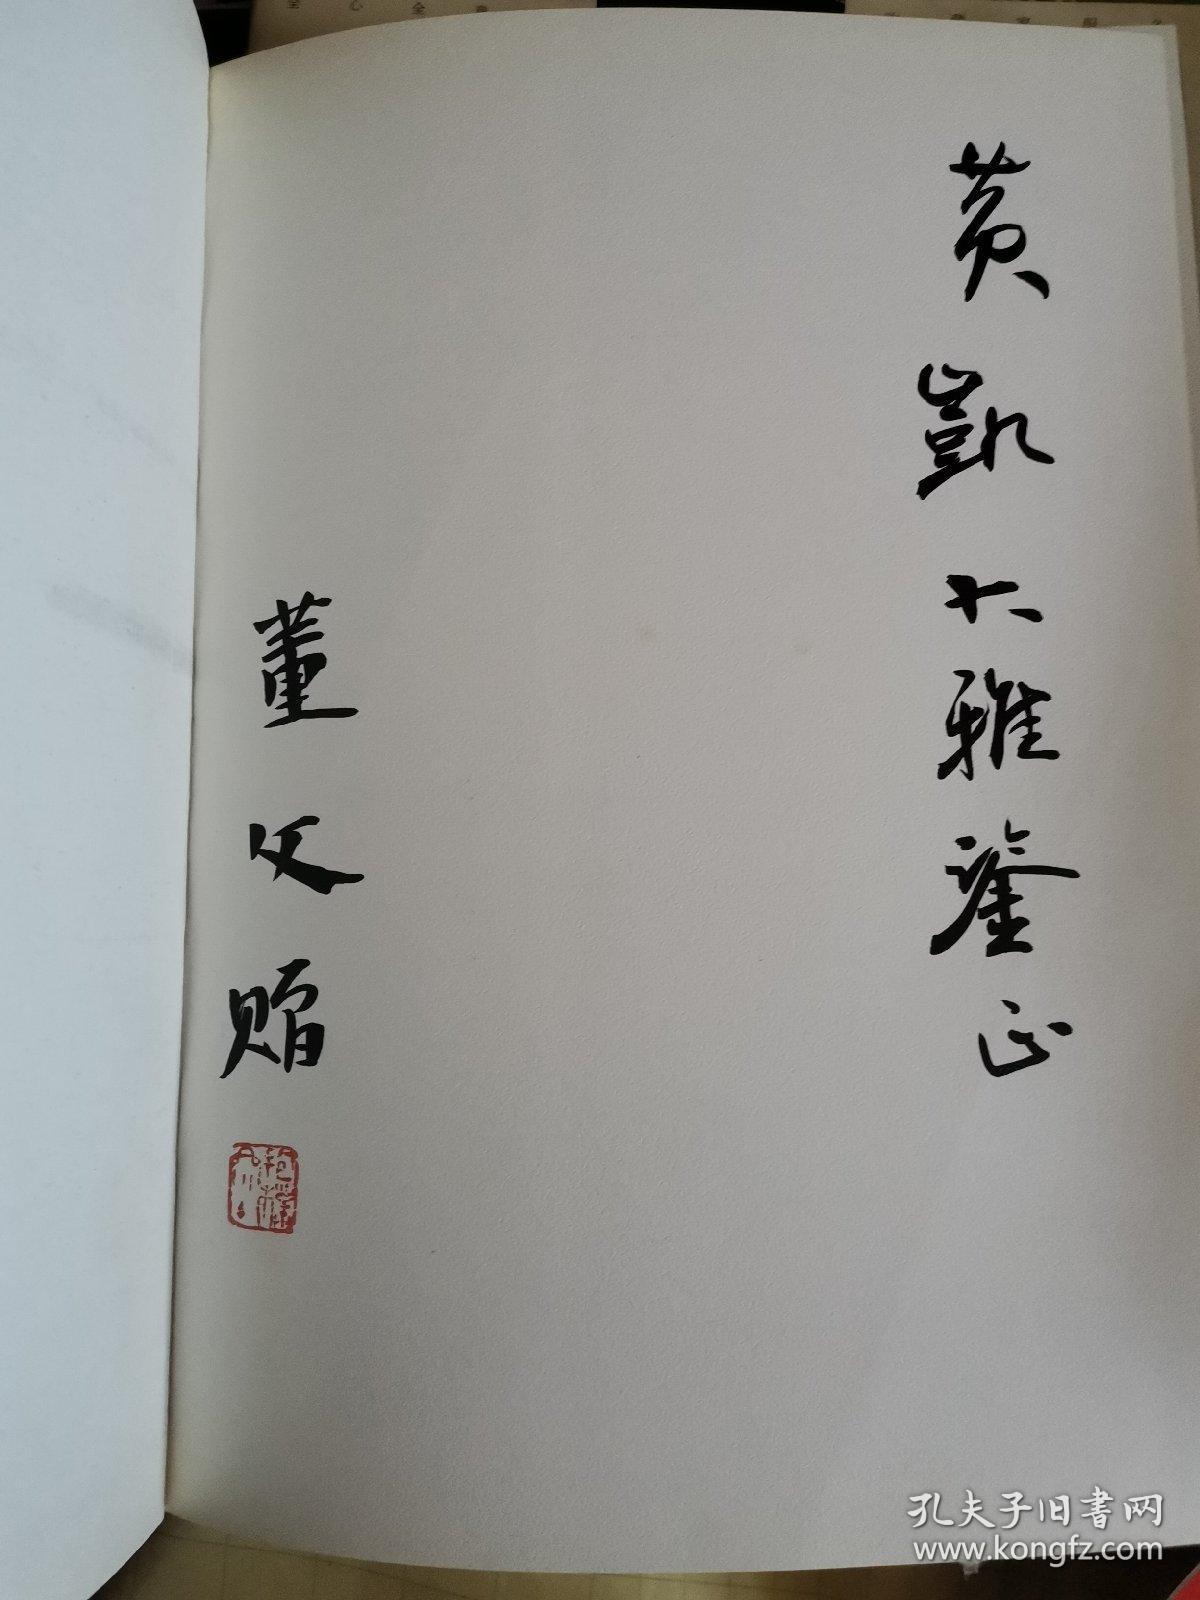 黄凯大雅鉴正
董文赠
孔夫子旧书网
www.kongfz.com